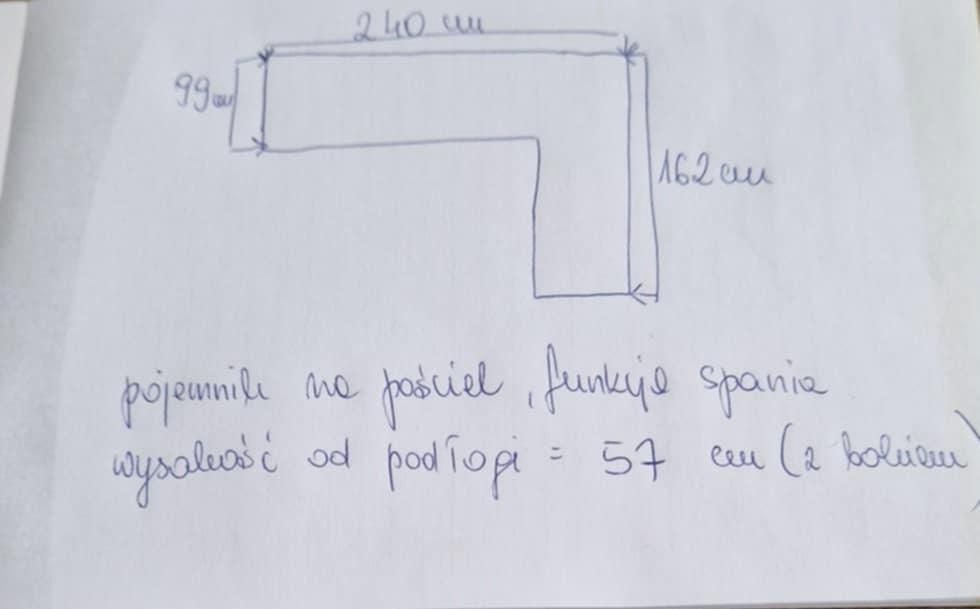 240 cm
99 cm
162 cm
pojemnik na pościel, funkcja spania
wysokość od podłogi = 57 cm (z bokiem)